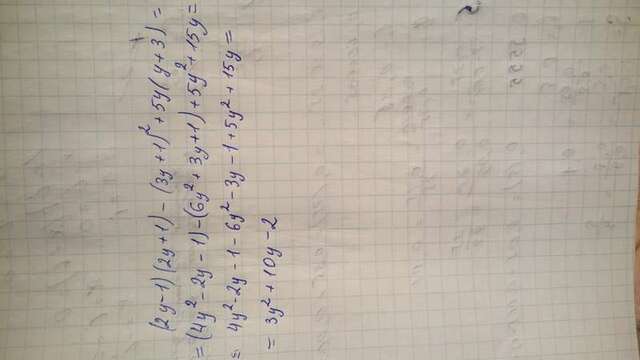 (2y-1)(2y+1)-(3y+1)²+5y(y+3)=
=(4y²-2y-1)-(6y²+3y+1)+5y²+15y=
= 4y²-2y-1-6y²-3y-1+5y²+15y=
= 3y²+10y-2